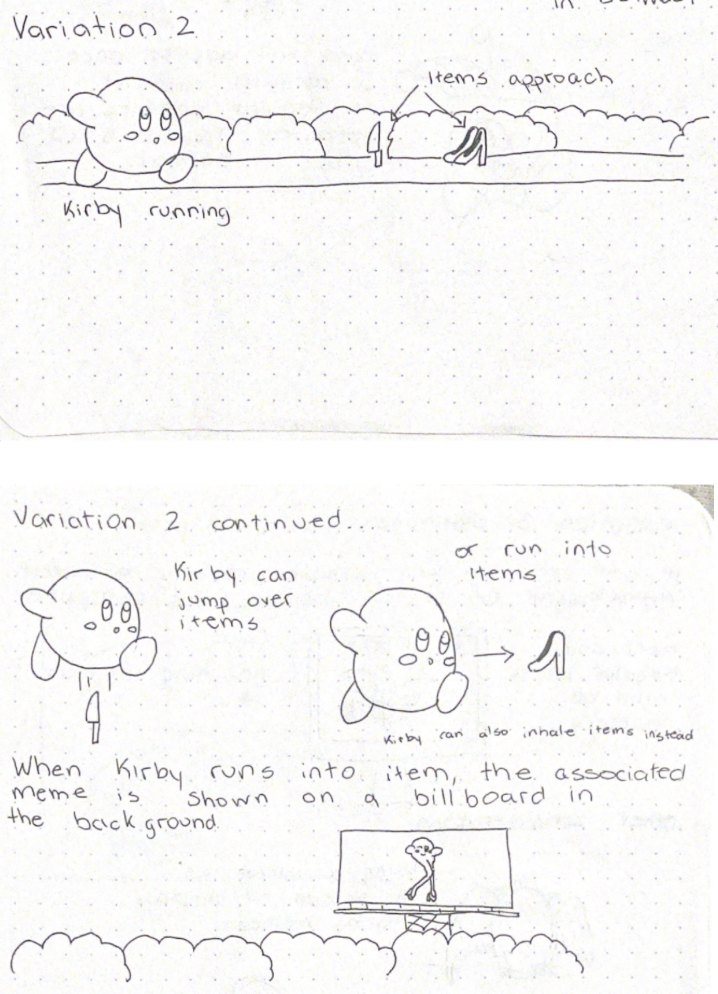 Variation 2
Items approach
Kirby running
Variation 2 continued...
Kirby can
jump over
items
or run into
items
Kirby can also inhale items instead
When Kirby runs into item, the associated
meme is shown on a billboard in
the background